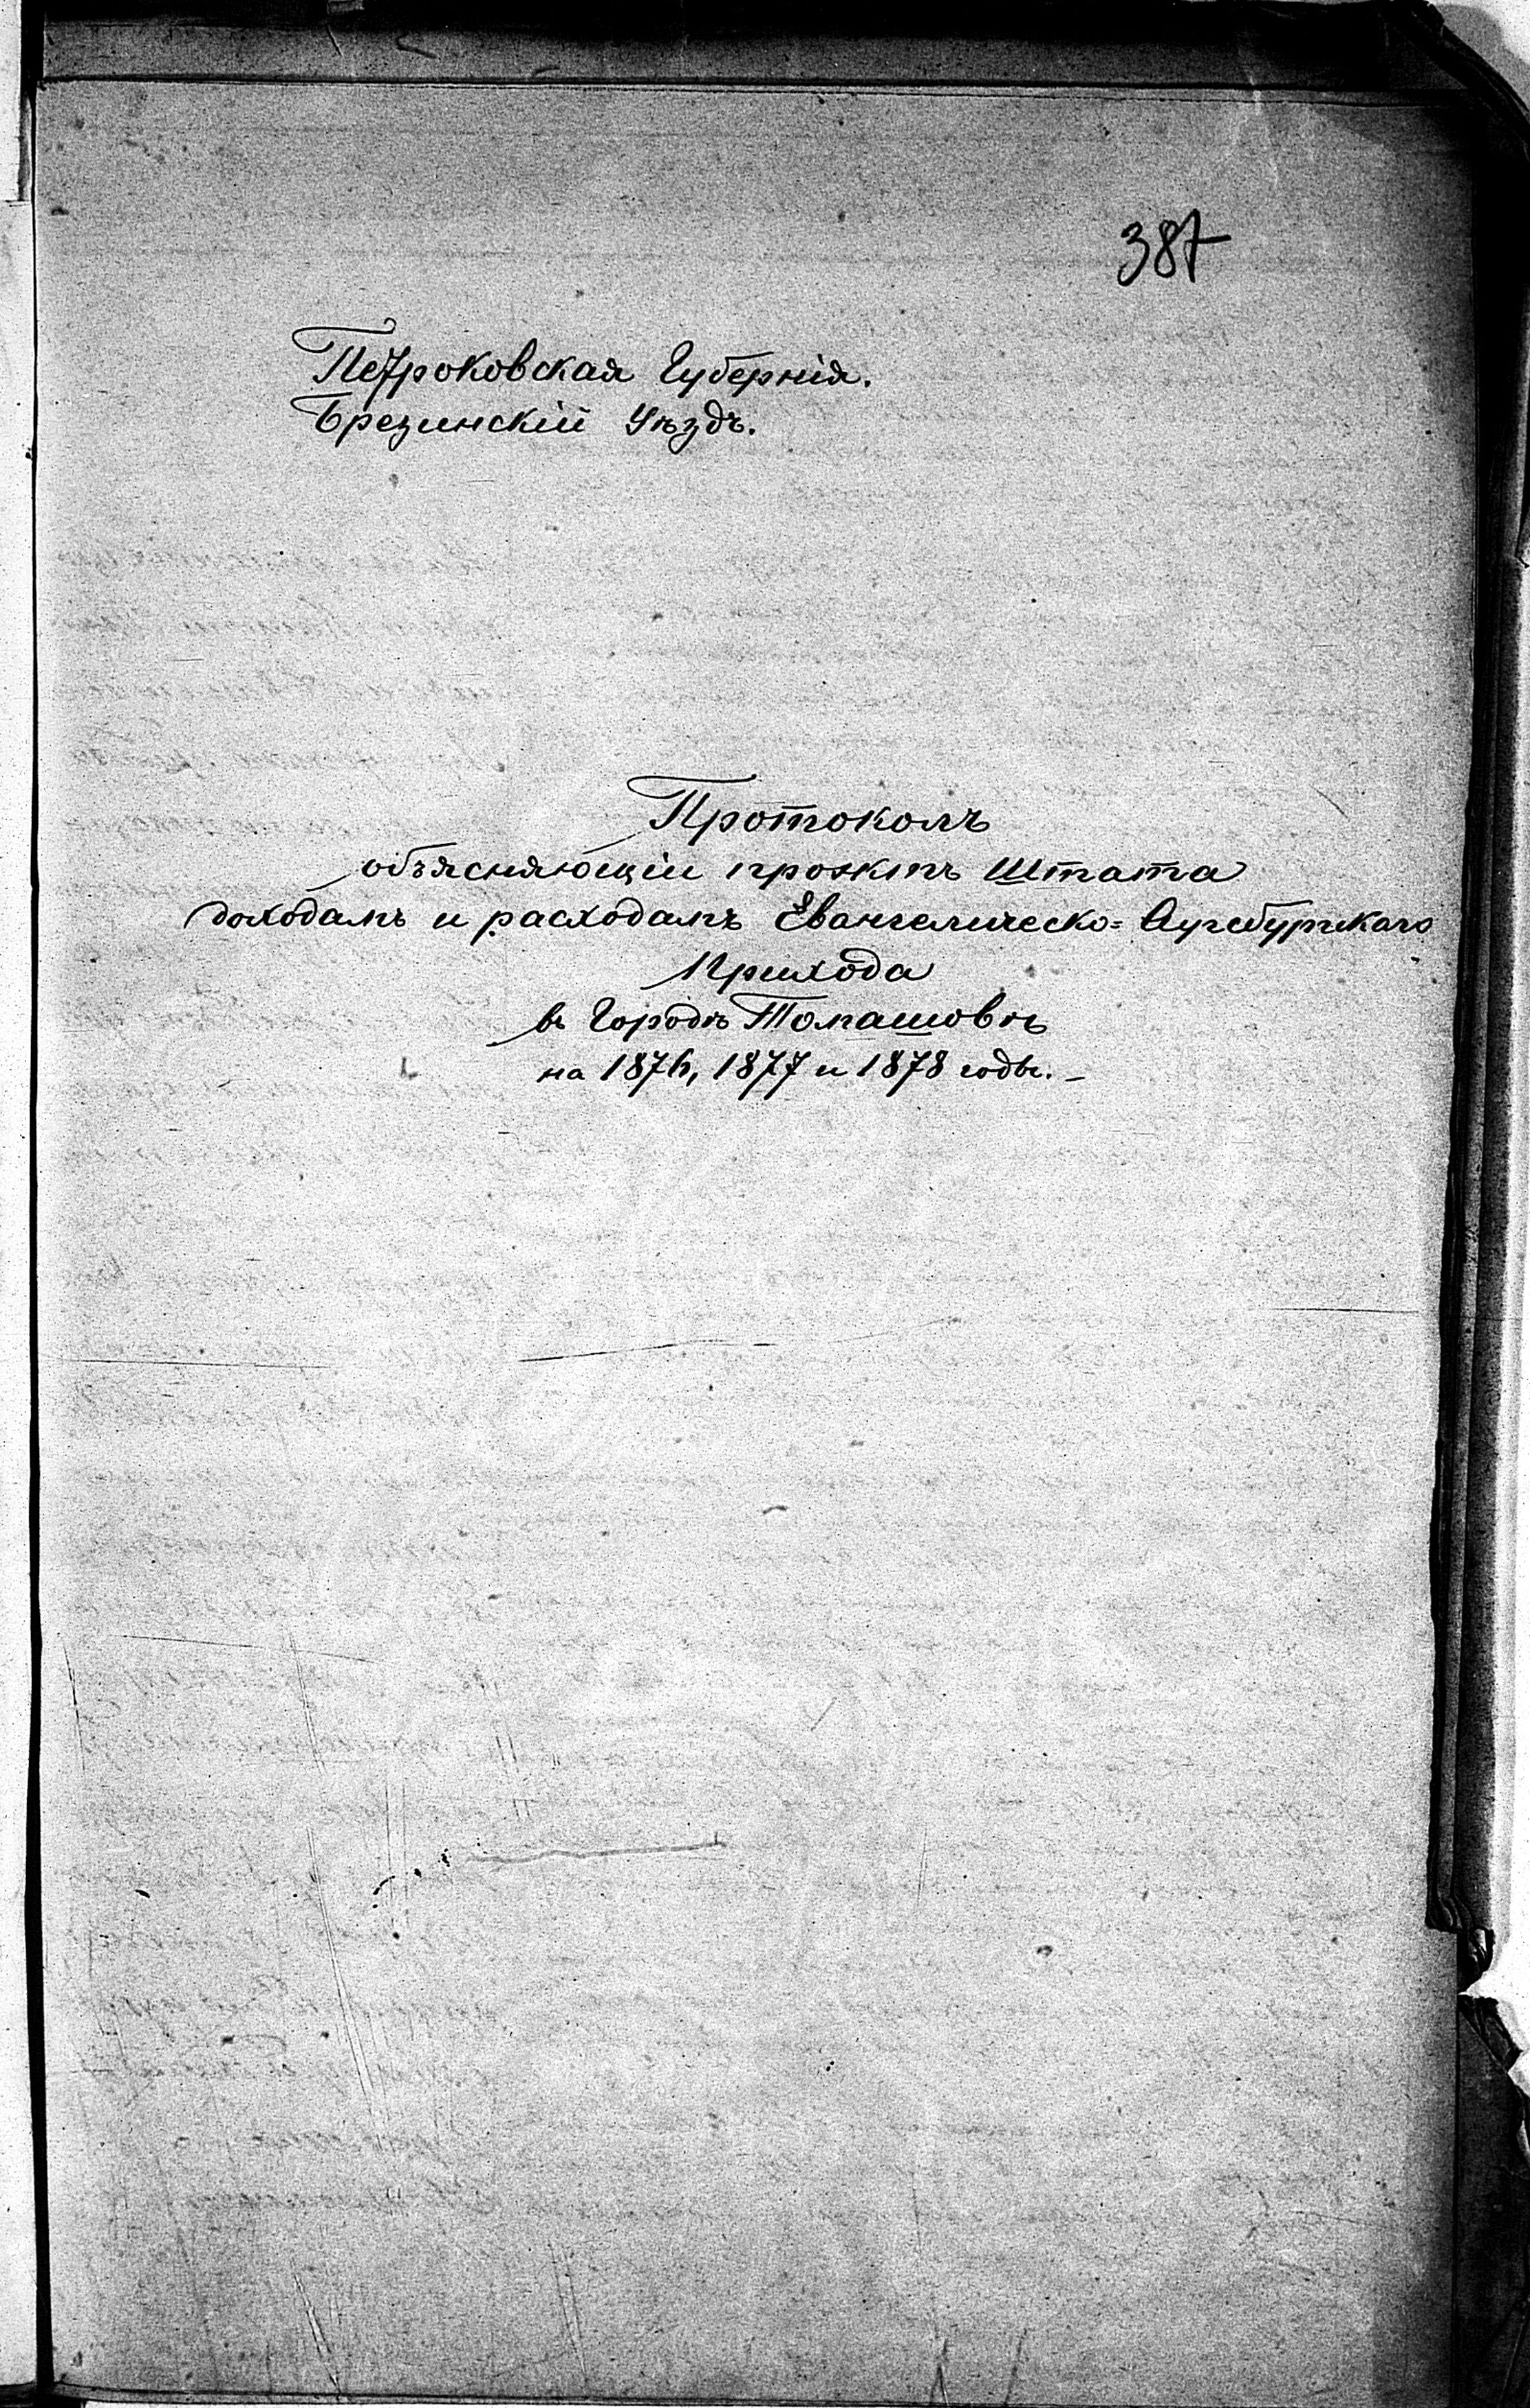 387
Петроковская Губернія.
Брезинскій Уѣздъ.
Протоколъ
объясняющій проэктъ Штата
доходамъ и расходамъ Евангелическо-Аугсбургскаго
Прихода
въ Городѣ Томашовѣ
на 1876, 1877 и 1878 годы.-